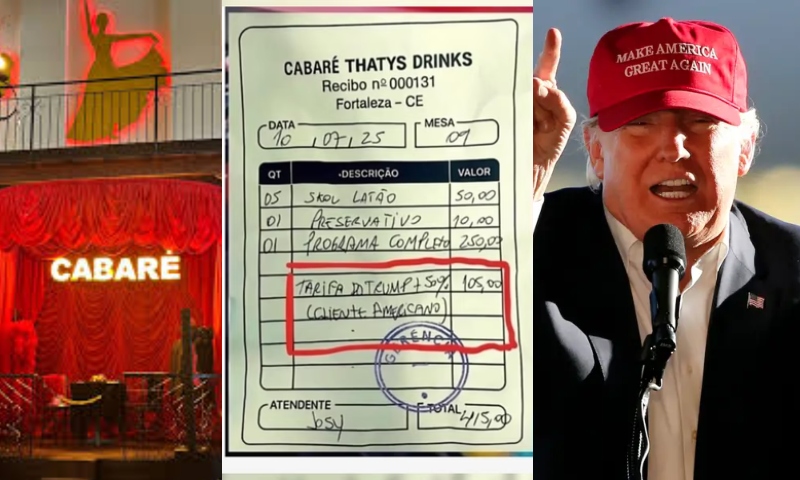 CABARÉ
CABARÉ THATYS DRINKS
Recibo nº 000131
Fortaleza – CE
DATA 10 / 07 / 25 MESA 09
QT DESCRIÇÃO VALOR
05 SKOL LATÃO 50,00
01 PRESERVATIVO 10,00
01 PROGRAMA COMPLETO 250,00
TARIFA DO TRUMP + 50% 105,00
(CLIENTE AMERICANO)
GERÊNCIA
ATENDENTE TOTAL 415,00
MAKE AMERICA
GREAT AGAIN